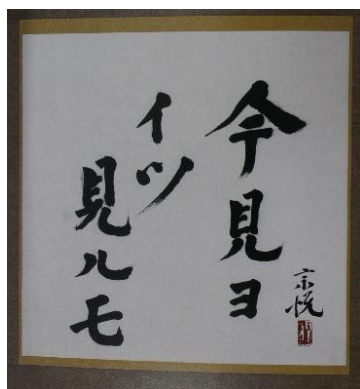 今見ヨ
イツ
見ルモ
宗悦